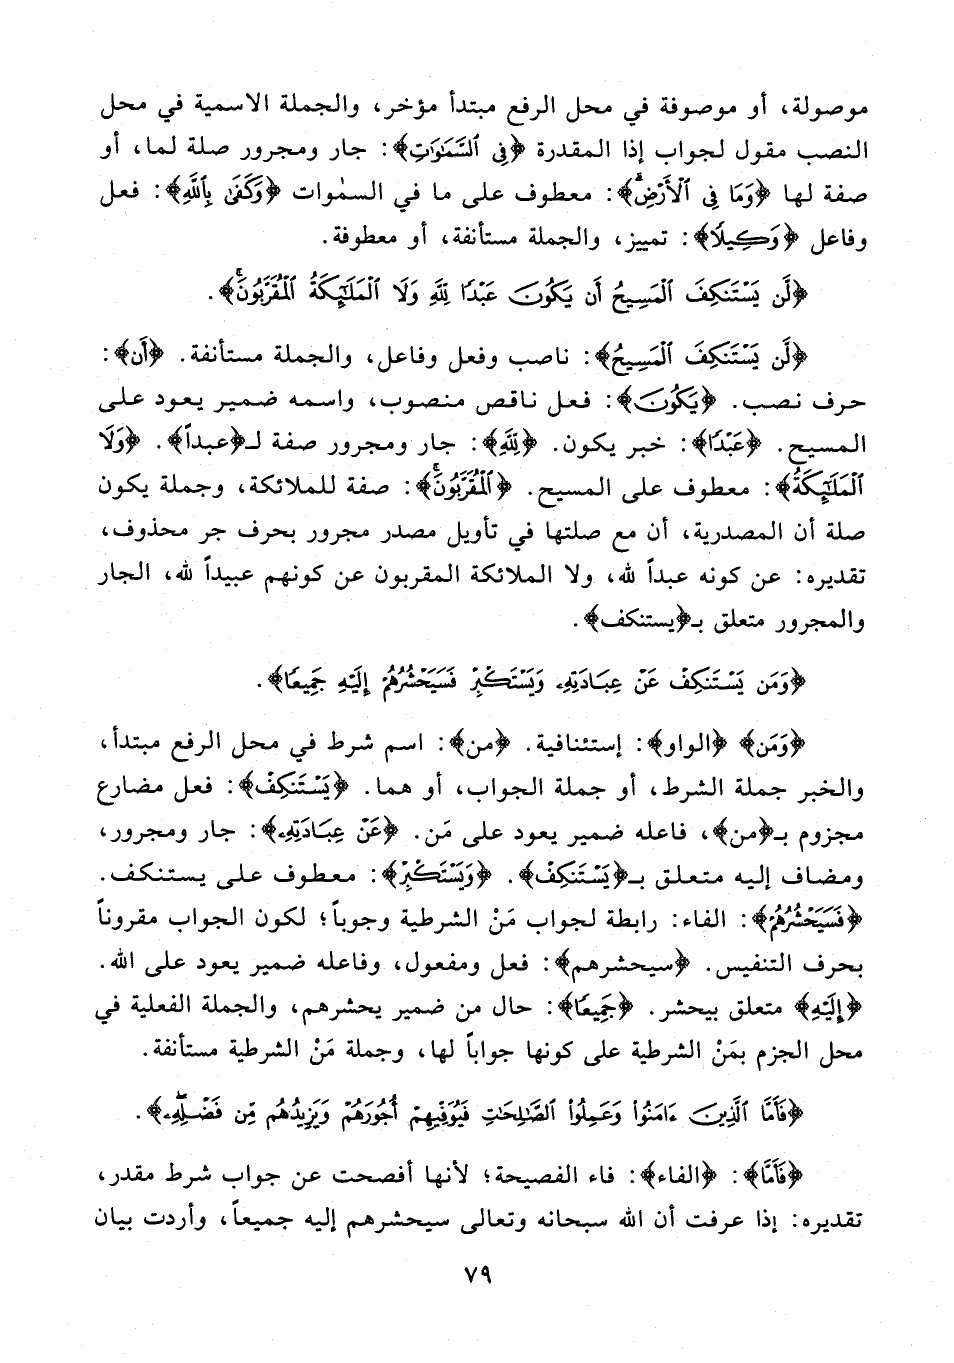 موصولة، أو موصوفة في محل الرفع مبتدأ مؤخر، والجملة الاسمية في محل
النصب مقول لجواب إذا المقدرة ﴿فِى ٱلسَّمَٰوَٰتِ﴾: جار ومجرور صلة لما، أو
صفة لها ﴿وَمَا فِى ٱلْأَرْضِۗ﴾: معطوف على ما في السمٰوات ﴿وَكَفَىٰ بِٱللَّهِ﴾: فعل
وفاعل ﴿وَكِيلًا﴾: تمييز، والجملة مستأنفة، أو معطوفة.
﴿لَّن يَسْتَنكِفَ ٱلْمَسِيحُ أَن يَكُونَ عَبْدًا لِّلَّهِ وَلَا ٱلْمَلَٰٓئِكَةُ ٱلْمُقَرَّبُونَۚ﴾.
﴿لَّن يَسْتَنكِفَ ٱلْمَسِيحُ﴾: ناصب وفعل وفاعل، والجملة مستأنفة. ﴿أَن﴾:
حرف نصب. ﴿يَكُونَ﴾: فعل ناقص منصوب، واسمه ضمير يعود على
المسيح. ﴿عَبْدًا﴾: خبر يكون. ﴿لِّلَّهِ﴾: جار ومجرور صفة لـ﴿عبداً﴾. ﴿وَلَا
ٱلْمَلَٰٓئِكَةُ﴾: معطوف على المسيح. ﴿ٱلْمُقَرَّبُونَۚ﴾: صفة للملائكة، وجملة يكون
صلة أن المصدرية، أن مع صلتها في تأويل مصدر مجرور بحرف جر محذوف،
تقديره: عن كونه عبداً لله، ولا الملائكة المقربون عن كونهم عبيداً لله، الجار
والمجرور متعلق بـ﴿يستنكف﴾.
﴿وَمَن يَسْتَنكِفْ عَنْ عِبَادَتِهِۦ وَيَسْتَكْبِرْ فَسَيَحْشُرُهُمْ إِلَيْهِ جَمِيعًا﴾.
﴿وَمَن﴾ ﴿الواو﴾: إستئنافية. ﴿من﴾: اسم شرط في محل الرفع مبتدأ،
والخبر جملة الشرط، أو جملة الجواب، أو هما. ﴿يَسْتَنكِفْ﴾: فعل مضارع
مجزوم بـ﴿من﴾، فاعله ضمير يعود على مَن. ﴿عَنْ عِبَادَتِهِۦ﴾: جار ومجرور،
ومضاف إليه متعلق بـ﴿يَسْتَنكِفْ﴾. ﴿وَيَسْتَكْبِرْ﴾: معطوف على يستنكف.
﴿فَسَيَحْشُرُهُمْ﴾: الفاء: رابطة لجواب مَنْ الشرطية وجوباً؛ لكون الجواب مقروناً
بحرف التنفيس. ﴿سيحشرهم﴾: فعل ومفعول، وفاعله ضمير يعود على الله.
﴿إِلَيْهِ﴾ متعلق بيحشر. ﴿جَمِيعًا﴾: حال من ضمير يحشرهم، والجملة الفعلية في
محل الجزم بمَنْ الشرطية على كونها جواباً لها، وجملة مَنْ الشرطية مستأنفة.
﴿فَأَمَّا ٱلَّذِينَ ءَامَنُوا۟ وَعَمِلُوا۟ ٱلصَّٰلِحَٰتِ فَيُوَفِّيهِمْ أُجُورَهُمْ وَيَزِيدُهُم مِّن فَضْلِهِۦۖ﴾.
﴿فَأَمَّا﴾: ﴿الفاء﴾: فاء الفصيحة؛ لأنها أفصحت عن جواب شرط مقدر،
تقديره: إذا عرفت أن الله سبحانه وتعالى سيحشرهم إليه جميعاً، وأردت بيان
٧٩